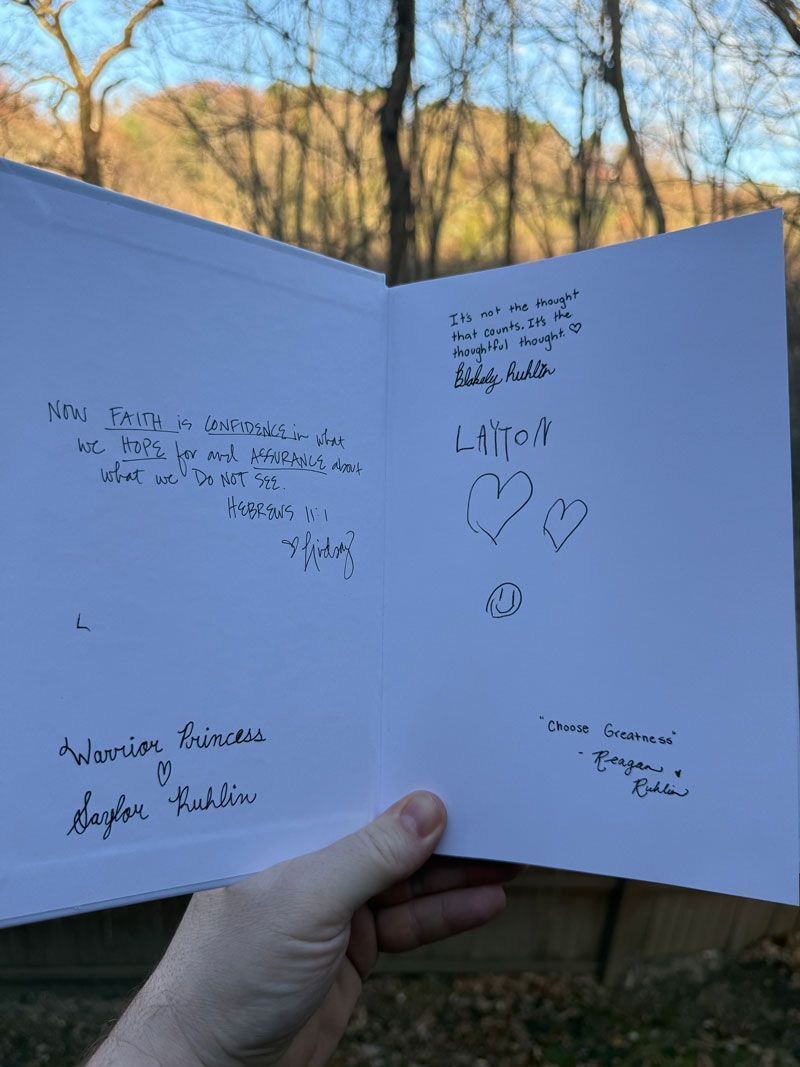 Now FAITH is CONFIDENCE in what
we HOPE for and ASSURANCE about
what we DO NOT SEE.
HEBREWS 11:1
♡ Lindsay
L
Warrior Princess
♡
Saylor Ruhlin
It's not the thought
that counts. It's the
thoughtful thought. ♡
Blakely Ruhlin
LAYTON
"Choose Greatness"
- Reagan ♥
Ruhlin